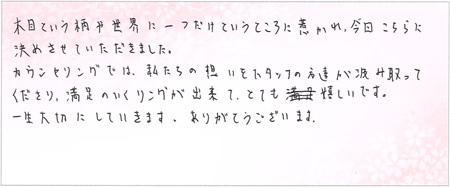 木目という柄や世界に一つだけというところに惹かれ、今日こちらに
決めさせていただきました。
カウンセリングでは、私たちの想いをスタッフの方達が汲み取って
くださり、満足のいくリングが出来て、とても嬉しいです。
一生大切にしていきます。ありがとうございます。